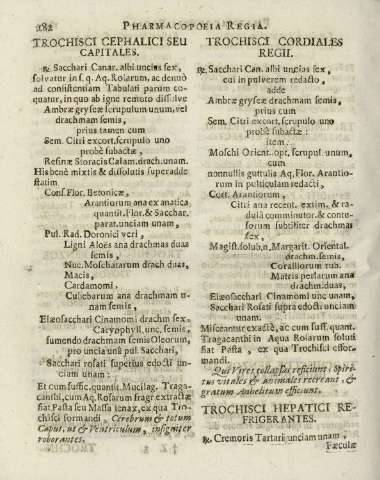 282 PHARMACOPOEIA REGIA.
TROCHISCI CEPHALICI SEU
CAPITALES.
℞ Sacchari Canar. albi uncias sex,
solvatur in s. q. Aq. Rosarum, ac denuò
ad consistentiam Tabulati parum co-
quatur, in quo ab igne remoto dissolve
Ambræ gryseæ scrupulum unum, vel
drachmam semis,
prius tamen cum
Sem. Citri excort, scrupulo uno
probè subactæ,
Resinæ Storacis Calam. drach. unam.
His benè mixtis & dissolutis superadde
statim
Cons. Flor. Betonicæ,
Arantiorum ana ex anatica
quantit. Flor. & Sacchar.
parat. unciam unam,
Pul. Rad. Doronici veri;
Ligni Aloës ana drachmas duas
semis,
Nuc. Moschatarum drach. duas,
Macis,
Cardamomi,
Cubebarum ana drachmam u-
nam semis,
Elæosacchari Cinamomi drachm sex.
Caryophyll. unc. semis,
sumendo drachmam semis Oleorum,
pro uncia unâ pul. Sacchari,
Sacchari rosati superius edocti un-
ciam unam;
Et cum suffic. quantit. Mucilag. Traga-
canthi, cum Aq. Rosarum fragr. extractæ
fiat Pasta seu Massa lenax, ex qua Tro-
chisci formandi, Cerebrum & totum
Caput, ut & Ventriculum, insigniter
roborantes.
TROCHISCI CORDIALES
REGII.
℞. Sacchari Can. albi uncias sex,
cui in pulverem redacto,
adde
Ambræ gryseæ drachmam semis,
prius cum
Sem. Citri excort, scrupulo uno
probè subactæ:
item
Moschi Orient. opt. scrupul. unum,
cum
nonnullis guttulis Aq. Flor. Arantio-
rum in pulticulam redacti,
Cort. Arantiorum,
Citri ana recent. exsim, & ra-
dulâ comminutor. & contu-
sorum subtiliter drachmas
sex,
Magist. solub. n. Margarit. Oriental.
drachm. semis,
Coralliorum rub.
Matris perlarum ana
drachm. duas,
Elæosacchari Cinamomi unc unam,
Sacchari Rosati supra edocti unciam
unam.
Misceantur exactè, ac cum suff. quant.
Tragacanthi in Aqua Rosarum soluti
fiat Pasta, ex qua Trochisci effor-
mandi.
Qui Vires collapsas reficiunt, Spiri-
tus vitales & animales recreant, &
gratum Anhelitum efficiunt.
TROCHISCI HEPATICI RE-
FRIGERANTES.
℞. Cremoris Tartari unciam unam,
Fæculæ